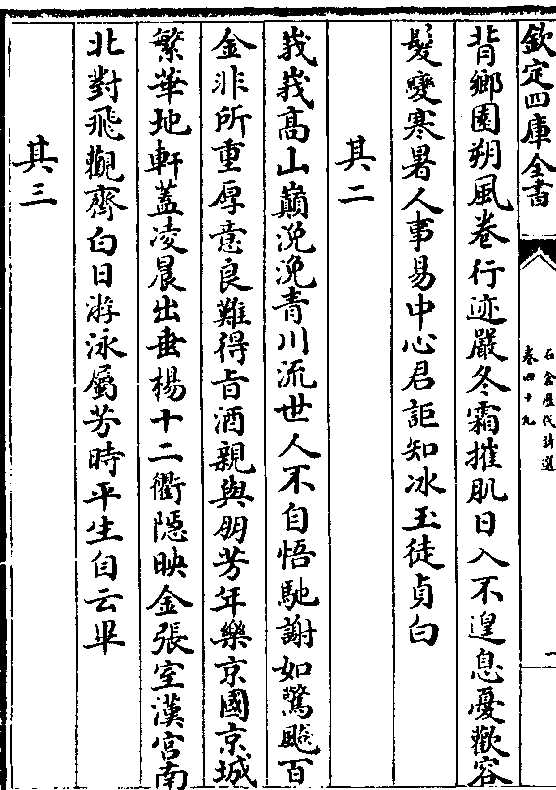 欽定四庫全書
石倉歷代詩選
卷四十九
一
背鄉園朔風卷行迹嚴冬霜摧肌日入不遑息憂歡容
髮變寒暑人事易中心君詎知冰玉徒貞白
其二
峩峩高山巔浼浼青川流世人不自悟馳謝如驚飈百
金非所重厚意良難得旨酒親與朋芳年樂京國京城
繁華地軒蓋凌晨出垂楊十二衢隱映金張室漢宮南
北對飛觀齊白日游泳屬芳時平生自云畢
其三